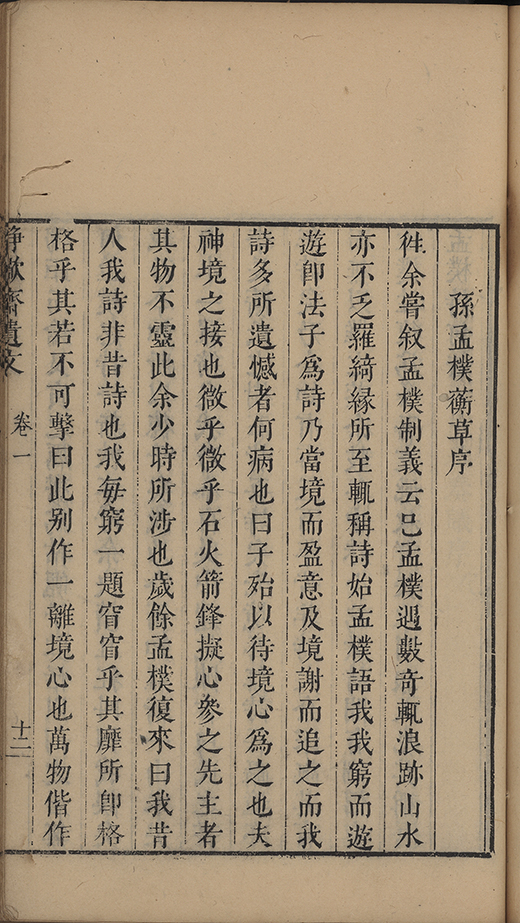 孫孟樸蘅草序
徃余嘗叙孟樸制義云已孟樸遇數奇輒浪跡山水
亦不乏羅綺縁所至輒稱詩始孟樸語我我窮而遊
遊卽法子爲詩乃當境而盈意及境謝而追之而我
詩多所遺憾者何病也曰子殆以待境心爲之也夫
神境之接也微乎微乎石火箭鋒擬心參之先主者
其物不靈此余少時所涉也歲餘孟樸復來曰我昔
人我詩非昔詩也我每窮一題窅窅乎其靡所卽格
格乎其若不可擊曰此别作一離境心也萬物偕作
齋遺文 卷一 十二